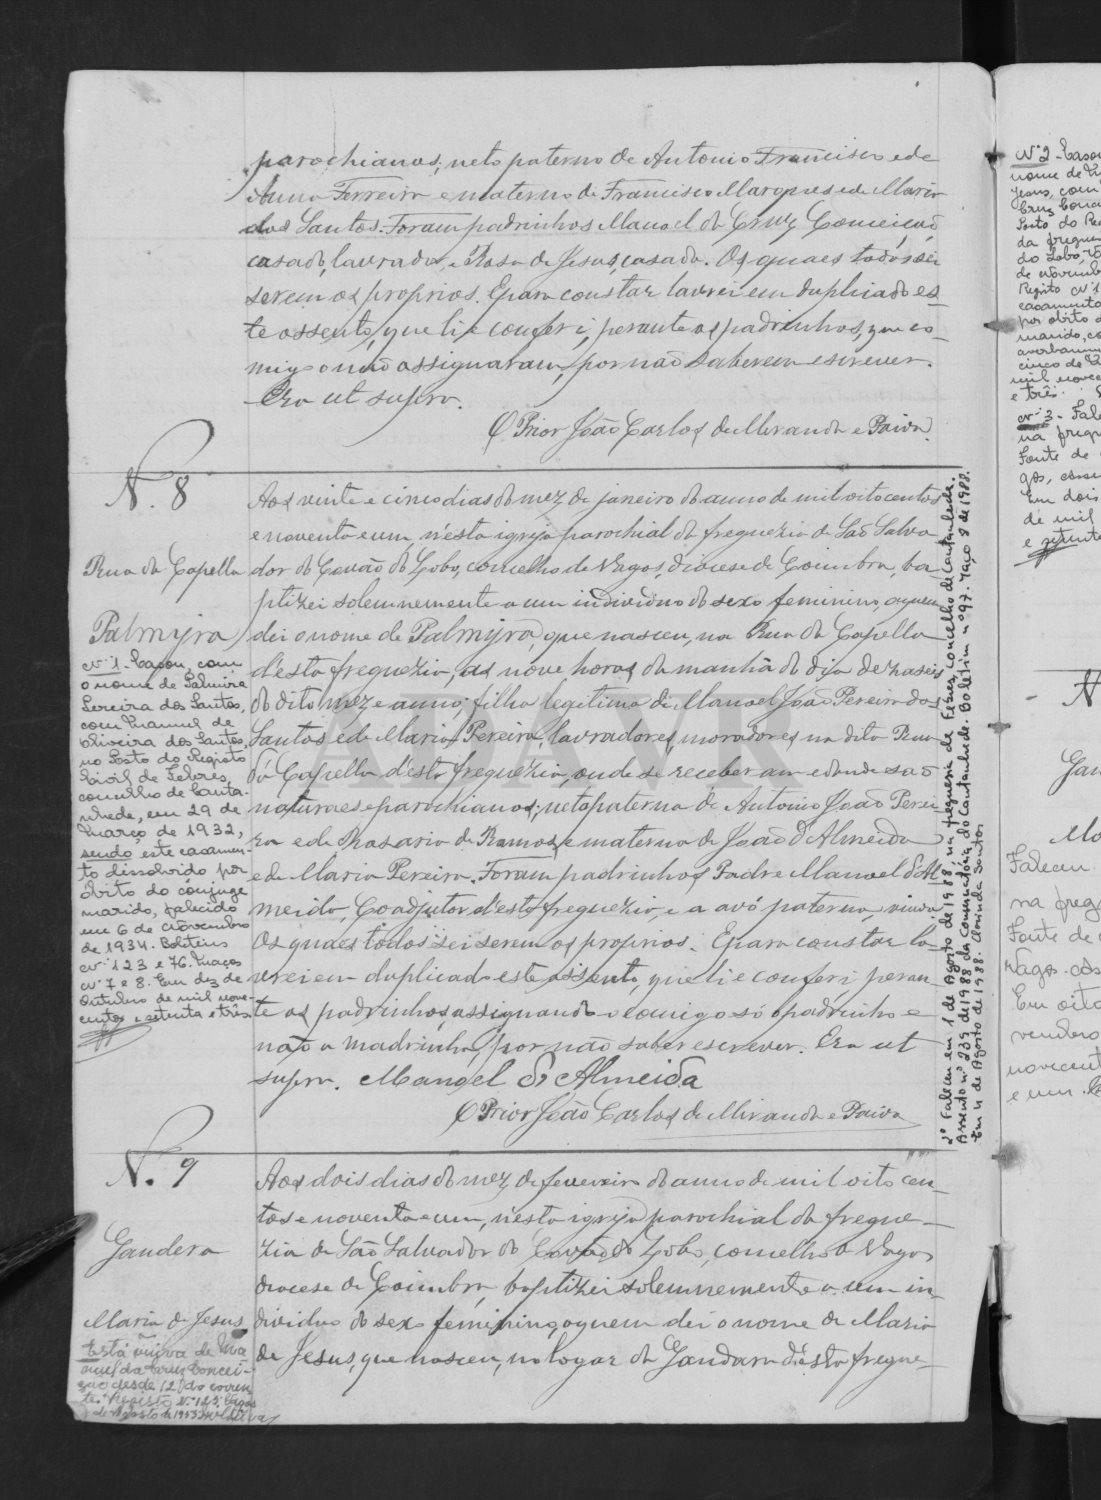 parochianos; neto paterno de Antonio Francisco e de
Anna Ferreira e materno de Francisco Marques e de Maria
dos Santos. Foram padrinhos Manoel da Cruz Conceição,
casado, lavrador, e Rosa de Jesus, casada. Os quaes todos sei
serem os proprios. E para constar lavrei em duplicado es-
te assento, que li e conferi, perante os padrinhos, que co-
migo não assignaram, por não saberem escrever.
Era ut supra.
O Prior João Carlos de Miranda e Paiva.
N. 8
Rua da Capella
Palmyra
Nº 1 - Casou, com
o nome de Palmira
Pereira dos Santos,
com Manuel de
Oliveira dos Santos,
no Posto do Registo
Civil de Febres,
concelho de Canta-
nhede, em 29 de
Março de 1932,
sendo este casamen-
to dissolvido por
óbito do cônjuge
marido, falecido
em 6 de Novembro
de 1934. Boletins
Nº 123 e 76. Maços
Nº 7 e 8. Em dez de
Outubro de mil nove-
centos e setenta e três
Aos vinte e cinco dias do mez de janeiro do anno de mil oitocentos
e noventa e um, n'esta igreja parochial da freguezia de São Salva-
dor do Covão do Lobo, concelho de Vagos, diocese de Coimbra, ba-
ptizei solemnemente a um individuo do sexo feminino, a quem
dei o nome de Palmyra, que nasceu, na Rua da Capella
d'esta freguezia, ás nove horas da manhã do dia dezaseis
do dito mez e anno; filha legitima de Manoel João Pereira dos
Santos e de Maria Pereira, lavradores, moradores na dita Rua
da Capella d'esta freguezia, onde se receberam e donde são
naturaes e parochianos; neta paterna de Antonio João Perei-
ra e de Rosaria de Ramos, e materna de João d'Almeida
e de Maria Pereira. Foram padrinhos Padre Manoel d'Al-
meida, Coadjutor d'esta freguezia, e a avó paterna, viuva.
Os quaes todos sei serem os proprios. E para constar la-
vrei em duplicado este assento, que li e conferi peran-
te os padrinhos, assignando comigo só o padrinho e
não a madrinha, por não saber escrever. Era ut
supra. Manoel d'Almeida
O Prior João Carlos de Miranda e Paiva
2º Faleceu em 1 de Agosto de 1988 na freguesia de Febres, concelho de Cantanhede.
Assento nº 239 de 1988 da Conservatória do Cantanhede. Boletim nº 97. Maço 8 de 1988.
Em 11 de Agosto de 1988.
N. 9
Gandera
Maria de Jesus
Está viuva de Ma-
nuel da Cruz Concei-
ção desde 12 do corren-
te. Registo Nº 125. Vagos
Aos dois dias do mez de fevereiro do anno de mil oito cen-
tos e noventa e um, n'esta igreja parochial da fregue-
zia de São Salvador do Covão do Lobo, concelho de Vagos
diocese de Coimbra, baptizei solemnemente a um in-
dividuo do sexo feminino, a quem dei o nome de Maria
de Jesus, que nasceu, no logar da Gandara d'esta fregue-
Nº 2 - Casou
nome de
Jesus, com
Cruz Concei
Posto do Re
da fregue
do Lobo,
de Novemb
Registo Nº 1
casamento
por óbito
marido,
averbamen
cinco de
mil novec
e três.
Nº 3 - Fale
na fregu
Fonte de
gos,
Em dois
de mil
e setenta
N
Gan
Ma
Faleceu
na fregu
Fonte de
Vagos.
Em oito
vembro
novecent
e um.
ADAVR